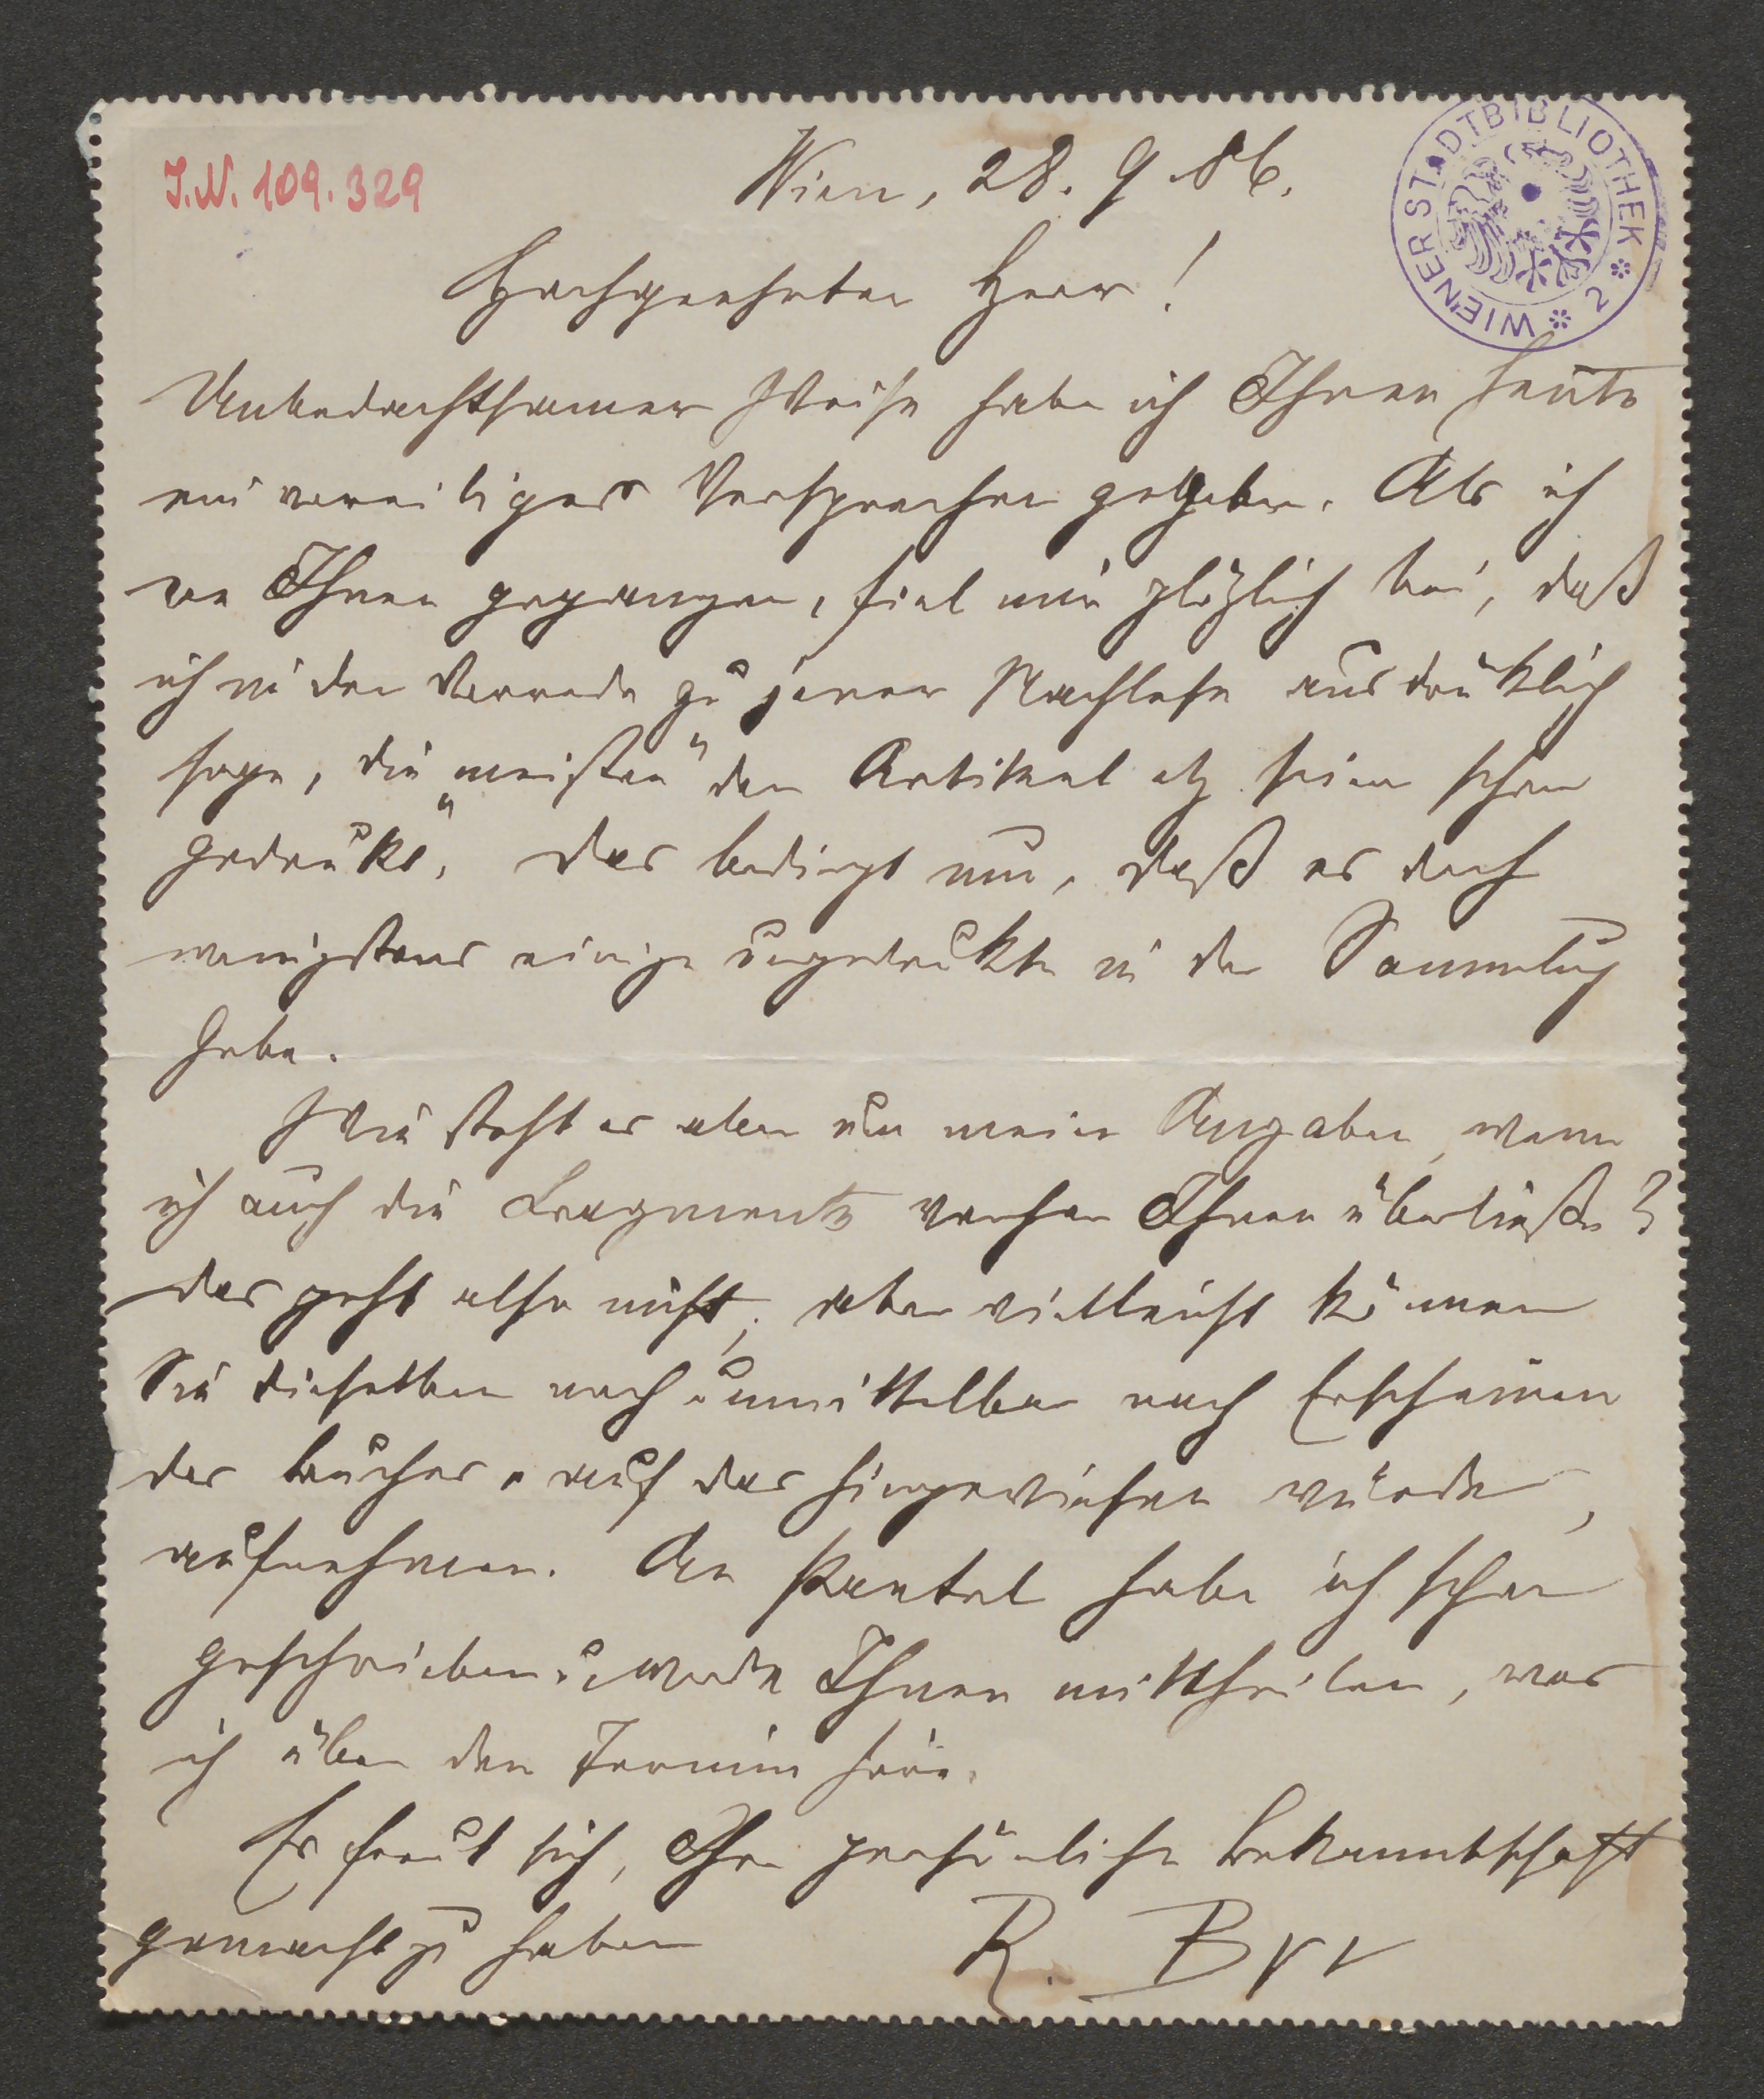 J.N. 109.329
WIENER STADTBIBLIOTHEK * 2 *
Wien, 28. 9. 86.
Hochgeehrter Herr!
Unbedachtsamer Weise habe ich Ihnen heute
ein voreiliges Versprechen gegeben. Als ich
von Ihnen gegangen, fiel mir plözlich bei, daß
ich in der Vorrede zu jener Nachlese ausdrüklich
sage, die „meisten“ der Artikel etz seien schon
gedrukt. Das bedingt nun, daß es doch
wenigstens einige ungedrukte in der Sammlung
gebe.
Wie steht es aber um meine Angaben, wenn
ich auch die Fragmente vorher Ihnen überließe?
Das geht also nicht; aber vielleicht können
Sie dieselben noch unmittelbar nach Erscheinen
des Buches, auf das hingewiesen würde,
aufnehmen. An habe ich schon
geschrieben u. werde Ihnen mittheilen, was
ich über den Termin höre.
Es freut sich, Ihre persönliche Bekanntschaft
gemacht zu haben
R. Byr